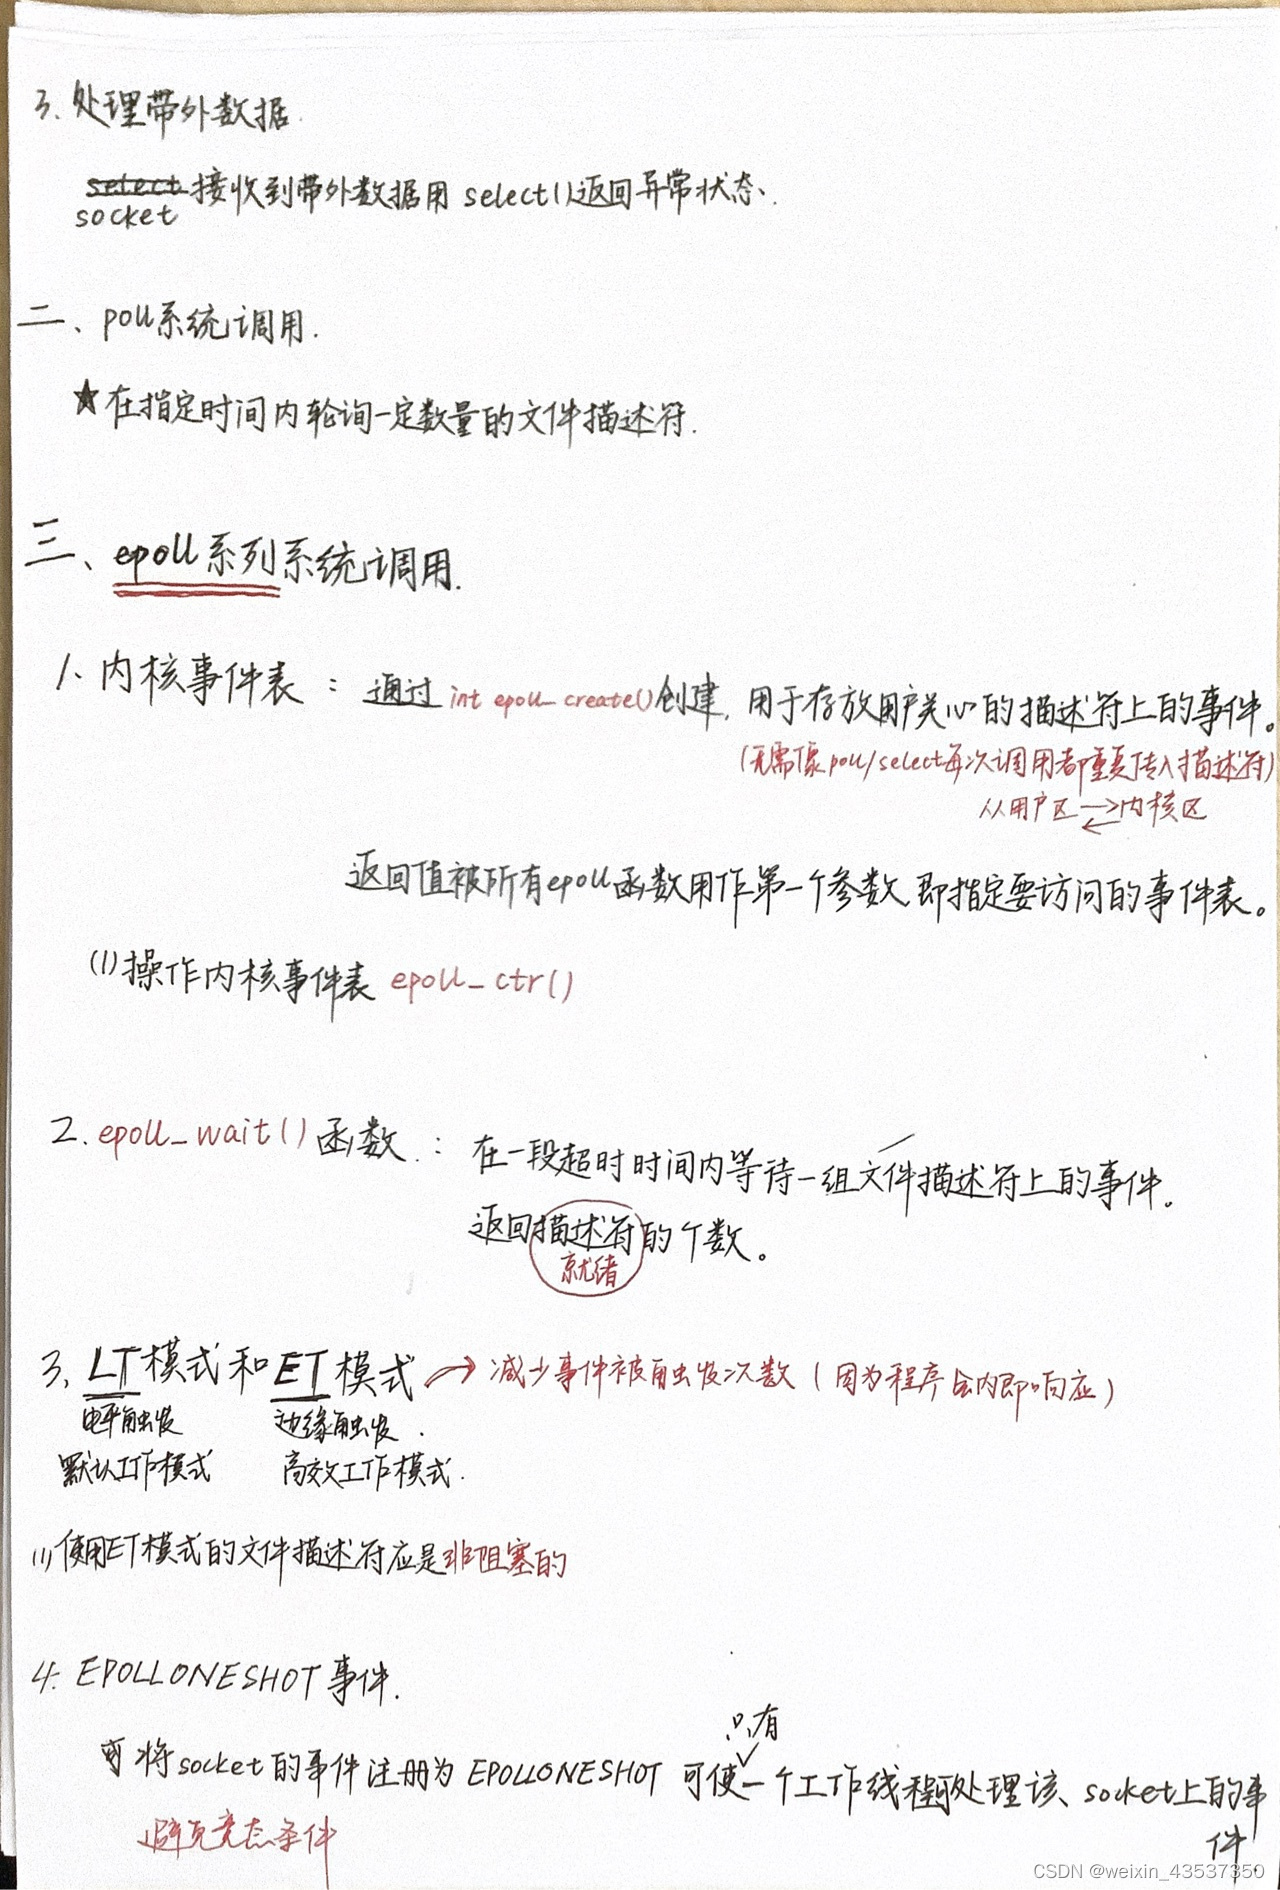 3. 处理带外数据.
select 接收到带外数据用 select()返回异常状态.
socket
二、poll系统调用.
★在指定时间内轮询一定数量的文件描述符.
三、epoll系列系统调用.
1. 内核事件表：通过 int epoll_create()创建, 用于存放用户关心的描述符上的事件。
(无需像poll/select每次调用都重复传入描述符)
从用户区⇄内核区
返回值被所有epoll函数用作第一个参数,即指定要访问的事件表。
(1)操作内核事件表 epoll_ctr()
2. epoll_wait()函数：在一段超时时间内等待一组文件描述符上的事件。
返回描述符的个数。
就绪
3. LT模式和ET模式→减少事件被触发次数(因为程序会内即响应)
电平触发 边缘触发.
默认工作模式 高效工作模式.
(1)使用ET模式的文件描述符应是非阻塞的
4. EPOLLONESHOT事件.
只有
可将socket的事件注册为EPOLLONESHOT 可使一个工作线程可处理该socket上的事
件.
避免竞态条件
CSDN @weixin_43537350